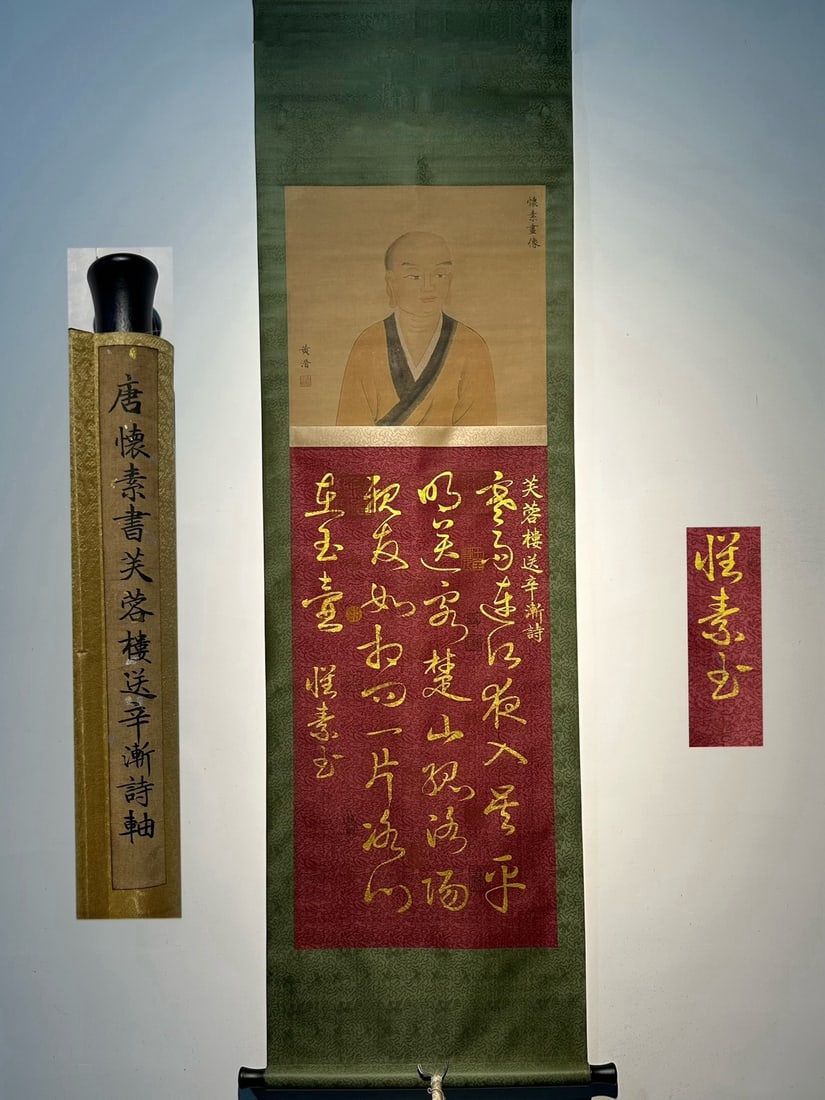 唐懷素書芙蓉樓送辛漸詩軸
懷素畫像
芙蓉樓送辛漸詩
寒雨連江夜入吳平
明送客楚山孤洛陽
親友如相問一片冰心
在玉壺
懷素書
懷素書